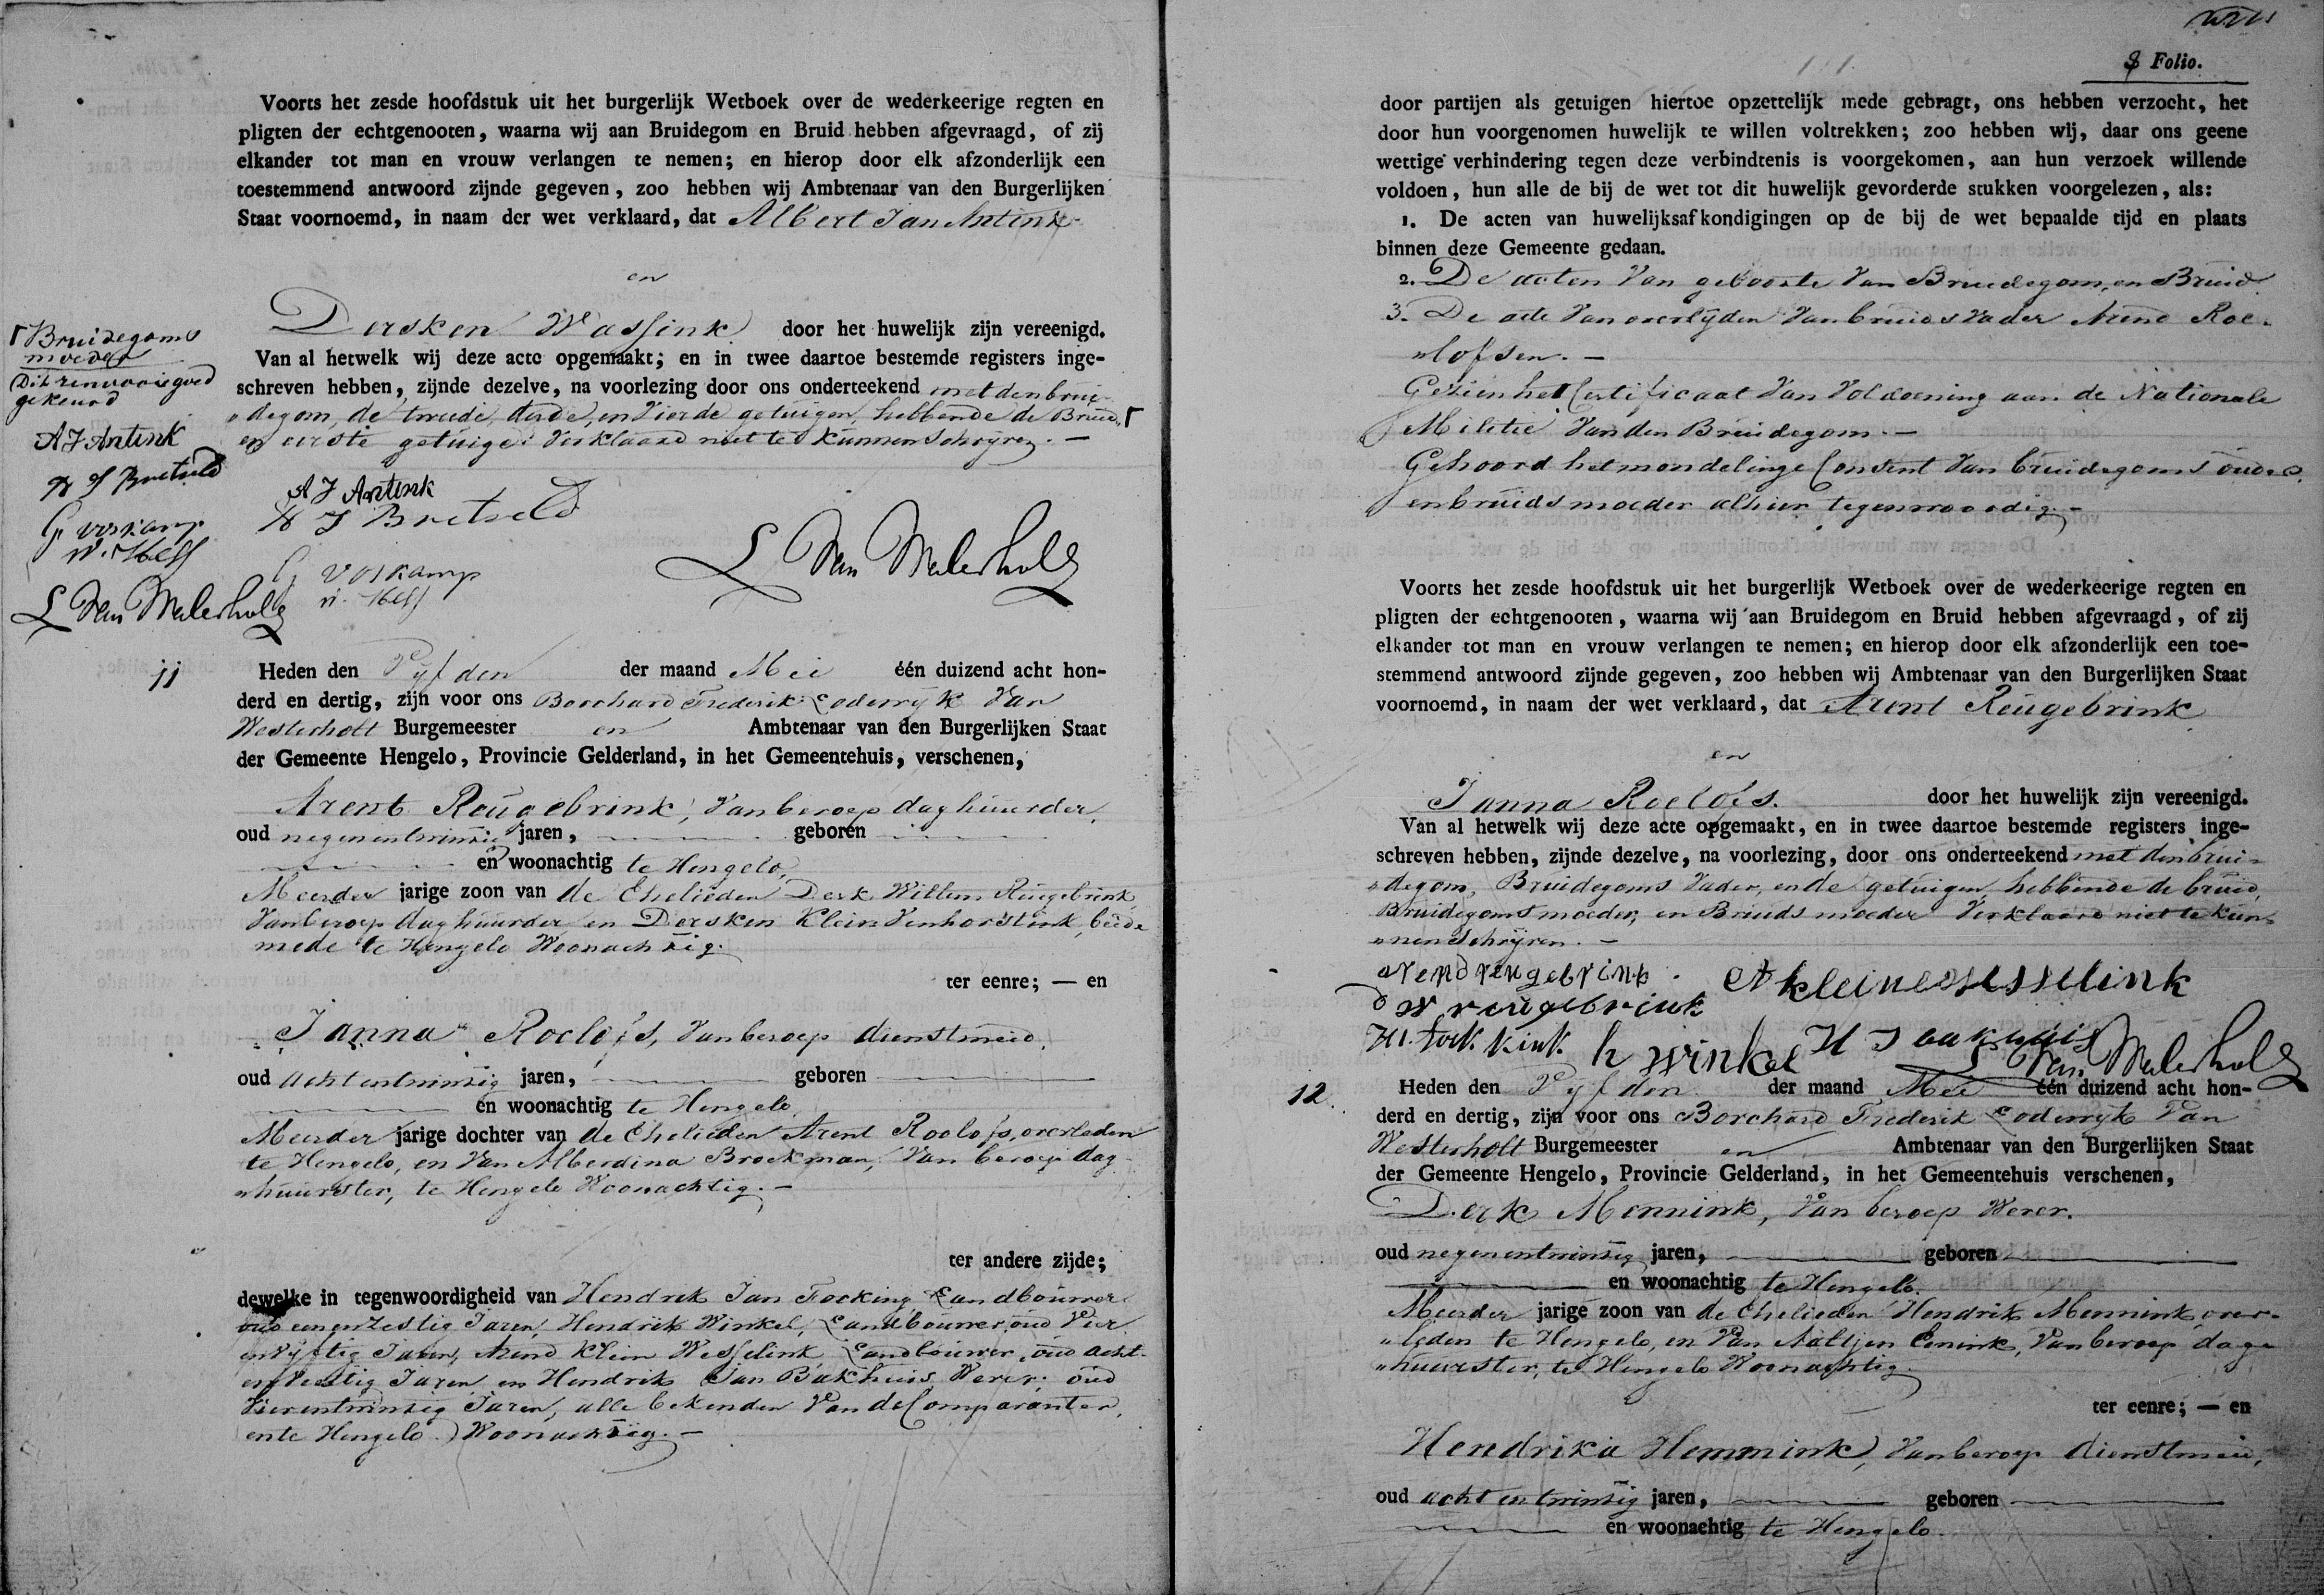 Voorts het zesde hoofdstuk uit het burgerlijk Wetboek over de wederkeerige regten en
pligten der echtgenooten, waarna wij aan Bruidegom en Bruid hebben afgevraagd, of zij
elkander tot man en vrouw verlangen te nemen; en hierop door elk afzonderlijk een
toestemmend antwoord zijnde gegeven, zoo hebben wij Ambtenaar van den Burgerlijken
Staat voornoemd, in naam der wet verklaard, dat Albert Jan Antink
en
Dersken Wassink door het huwelijk zijn vereenigd.
Van al hetwelk wij deze acte opgemaakt; en in twee daartoe bestemde registers inge-
schreven hebben, zijnde dezelve, na voorlezing door ons onderteekend met den brui-
"degom, de tweede, derde, en vierde getuigen, hebbende de Bruid, Γ
en eerste getuige verklaard niet te kunnen schrijven. —
Γ Bruidegoms
moeder
Dit renvooi goed
gekeurd
A J Antink
H J Bretveld
G Voskamp
W. Hess
L Van Westerholt
A J Antink
H J Bretveld
G Voskamp
W. Hess
L Van Westerholt
11
Heden den Vyfden der maand Mei één duizend acht hon-
derd en dertig, zijn voor ons Borchard Frederik Lodewyk Van
Westerholt Burgemeester en Ambtenaar van den Burgerlijken Staat
der Gemeente Hengelo, Provincie Gelderland, in het Gemeentehuis, verschenen,
Arent Reugebrink, Van beroep daghuurder,
oud negenentwintig jaren, geboren
en woonachtig te Hengelo,
Meerder jarige zoon van de Ehelieden Derk Willem Reugebrink
Van beroep daghuurder en Dersken Klein Venhorstink, beide
mede te Hengelo Woonachtig.
ter eenre; — en
Janna Roelofs, Van beroep dienstmeid,
oud achtentwintig jaren, geboren
en woonachtig te Hengelo,
Meerder jarige dochter van de Ehelieden Arent Roelofs, overleden
te Hengelo, en Van Alberdina Broekman, Van beroep dag-
"huurster, te Hengelo Woonachtig. —
ter andere zijde;
dewelke in tegenwoordigheid van Hendrik Jan Focking Landbouwer
oud eenenzestig Jaren, Hendrik Winkel, Landbouwer, oud Vier
envyftig Jaren, Arend Klein Wesselink Landbouwer, oud acht-
en Jaren en Hendrik Jan Bakhuis Wever, oud
Vierentwintig Jaren, alle bekenden Van de Comparanten,
en te Hengelo Woonachtig. —
8 Folio.
door partijen als getuigen hiertoe opzettelijk mede gebragt, ons hebben verzocht, het
door hun voorgenomen huwelijk te willen voltrekken; zoo hebben wij, daar ons geene
wettige verhindering tegen deze verbindtenis is voorgekomen, aan hun verzoek willende
voldoen, hun alle de bij de wet tot dit huwelijk gevorderde stukken voorgelezen, als:
1. De acten van huwelijksafkondigingen op de bij de wet bepaalde tijd en plaats
binnen deze Gemeente gedaan.
2. De acten Van geboorte Van Bruidegom, en Bruid
3. De acte Van overlijden Van bruids Vader Arend Roe-
"lofsen. —
Gezien het Certificaat Van Voldoening aan de Nationale
Militie Van den Bruidegom. —
Gehoord het mondelinge Consent Van bruidegoms ouders
en bruids moeder alhier tegenwoordig. —
Voorts het zesde hoofdstuk uit het burgerlijk Wetboek over de wederkeerige regten en
pligten der echtgenooten, waarna wij aan Bruidegom en Bruid hebben afgevraagd, of zij
elkander tot man en vrouw verlangen te nemen; en hierop door elk afzonderlijk een toe-
stemmend antwoord zijnde gegeven, zoo hebben wij Ambtenaar van den Burgerlijken Staat
voornoemd, in naam der wet verklaard, dat Arent Reugebrink
en
Janna Roelofs. door het huwelijk zijn vereenigd.
Van al hetwelk wij deze acte opgemaakt, en in twee daartoe bestemde registers inge-
schreven hebben, zijnde dezelve, na voorlezing, door ons onderteekend met den brui-
"degom, Bruidegoms Vader, en de getuigen, hebbende de bruid,
Bruidegoms moeder, en Bruids moeder Verklaard niet te kun-
"nen Schrijven. —
arend reugebrink.
d w reugebrink
A kleine wesselink
H J fokkink
h winkel
H J bakhuis
L Van Westerholt
12
Heden den Vyfden der maand Mei één duizend acht hon-
derd en dertig, zijn voor ons Borchard Frederik Lodewyk Van
Westerholt Burgemeester en Ambtenaar van den Burgerlijken Staat
der Gemeente Hengelo, Provincie Gelderland, in het Gemeentehuis verschenen,
Derk Mennink, Van beroep Wever.
oud negenentwintig jaren, geboren
en woonachtig te Hengelo.
Meerder jarige zoon van de Ehelieden Hendrik Mennink over-
"leden te Hengelo, en Van Aaltjen Enink, Van beroep dag-
"huurster, te Hengelo Woonachtig.
ter eenre; — en
Hendrika Hemmink, Van beroep dienstmeid,
oud achtentwintig jaren, geboren
en woonachtig te Hengelo.